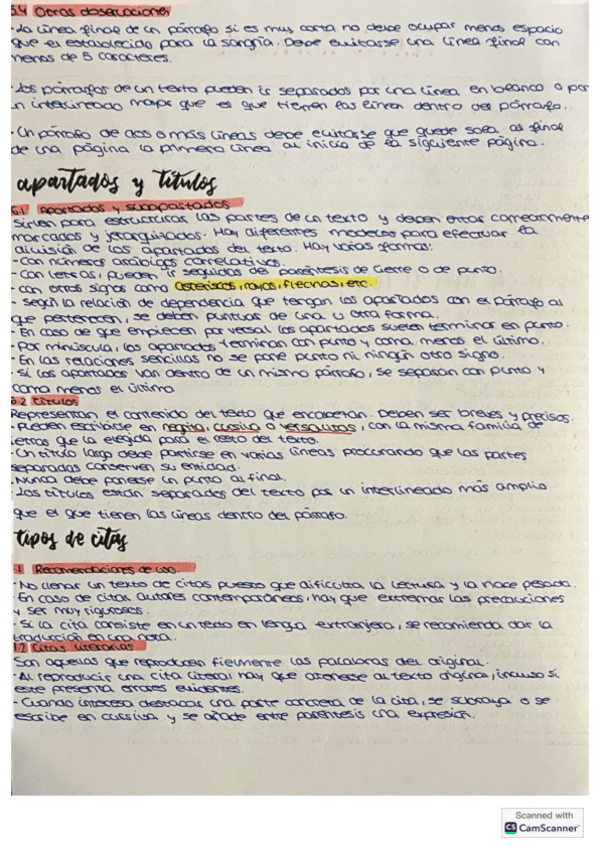 5.4 Otras observaciones
- La línea final de un párrafo si es muy corta no debe ocupar menos espacio
que el establecido para la sangría. Debe evitarse una línea final con
menos de 5 caracteres.
- Los párrafos de un texto pueden ir separados por una línea en blanco o por
un interlineado mayor que el que tienen las líneas dentro del párrafo.
- Un párrafo de dos o más líneas debe evitarse que quede sola al final
de una página la primera línea al inicio de la siguiente página.
apartados y títulos
6.1 Apartados y subapartados
Sirven para estructurar las partes de un texto y deben estar correctamente
marcados y jerarquizados. Hay diferentes modelos para efectuar la
división de los apartados del texto. Hay varias formas:
- Con números arábigos correlativos.
- Con letras, pueden ir seguidas de paréntesis de cierre o de punto.
- con otros signos como asteriscos, rayas, flechas, etc.
- según la relación de dependencia que tengan los apartados con el párrafo al
que pertenecen, se deben puntuar de una u otra forma.
- En caso de que empiecen por versal los apartados suelen terminar en punto.
- Por minúscula, los apartados terminan con punto y coma menos el último.
- En las relaciones sencillas no se pone punto ni ningún otro signo.
- Si los apartados van dentro de un mismo párrafo, se separan con punto y
coma menos el último
6.2 Títulos
Representan el contenido del texto que encabezan. Deben ser breves y precisos.
- Pueden escribirse en negrita, cursiva o versalitas, con la misma familia de
letras que la elegida para el resto del texto.
- Un título largo debe partirse en varias líneas procurando que las partes
separadas conserven su entidad.
- Nunca debe ponerse un punto al final.
- Los títulos están separados del texto por un interlineado más amplio
que el que tienen las líneas dentro del párrafo.
tipos de citas
.1 Recomendaciones de uso
- No llenar un texto de citas puesto que dificulta la lectura y la hace pesada.
- En caso de citar autores contemporáneos, hay que extremar las precauciones
y ser muy rigurosos.
- Si la cita consiste en un texto en lengua extranjera, se recomienda dar la
traducción en una nota.
1.2 Citas literarias
Son aquellas que reproducen fielmente las palabras del original.
- Al reproducir una cita literal hay que atenerse al texto original, incluso si
este presenta errores evidentes.
- Cuando interesa destacar una parte concreta de la cita, se subraya o se
escribe en cursiva y se añade entre paréntesis una expresión.
Scanned with
CS CamScanner